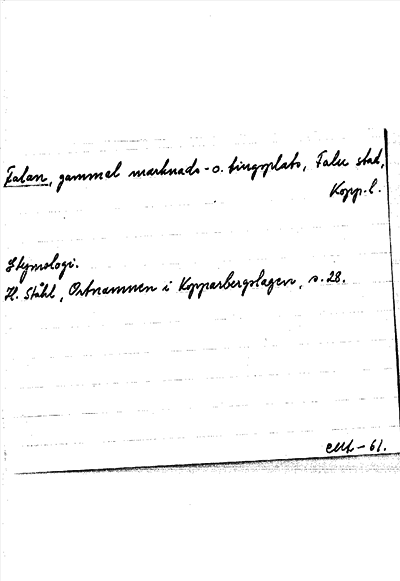 Falan, gammal marknads- o. tingsplats, Falu stad,
Kopp. l.
Etymologi.
H. Ståhl, Ortnamnen i Kopparbergslagen, s. 28.
-61.